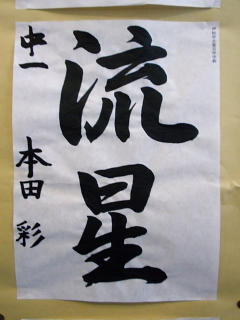 流星
中一 本田 彩